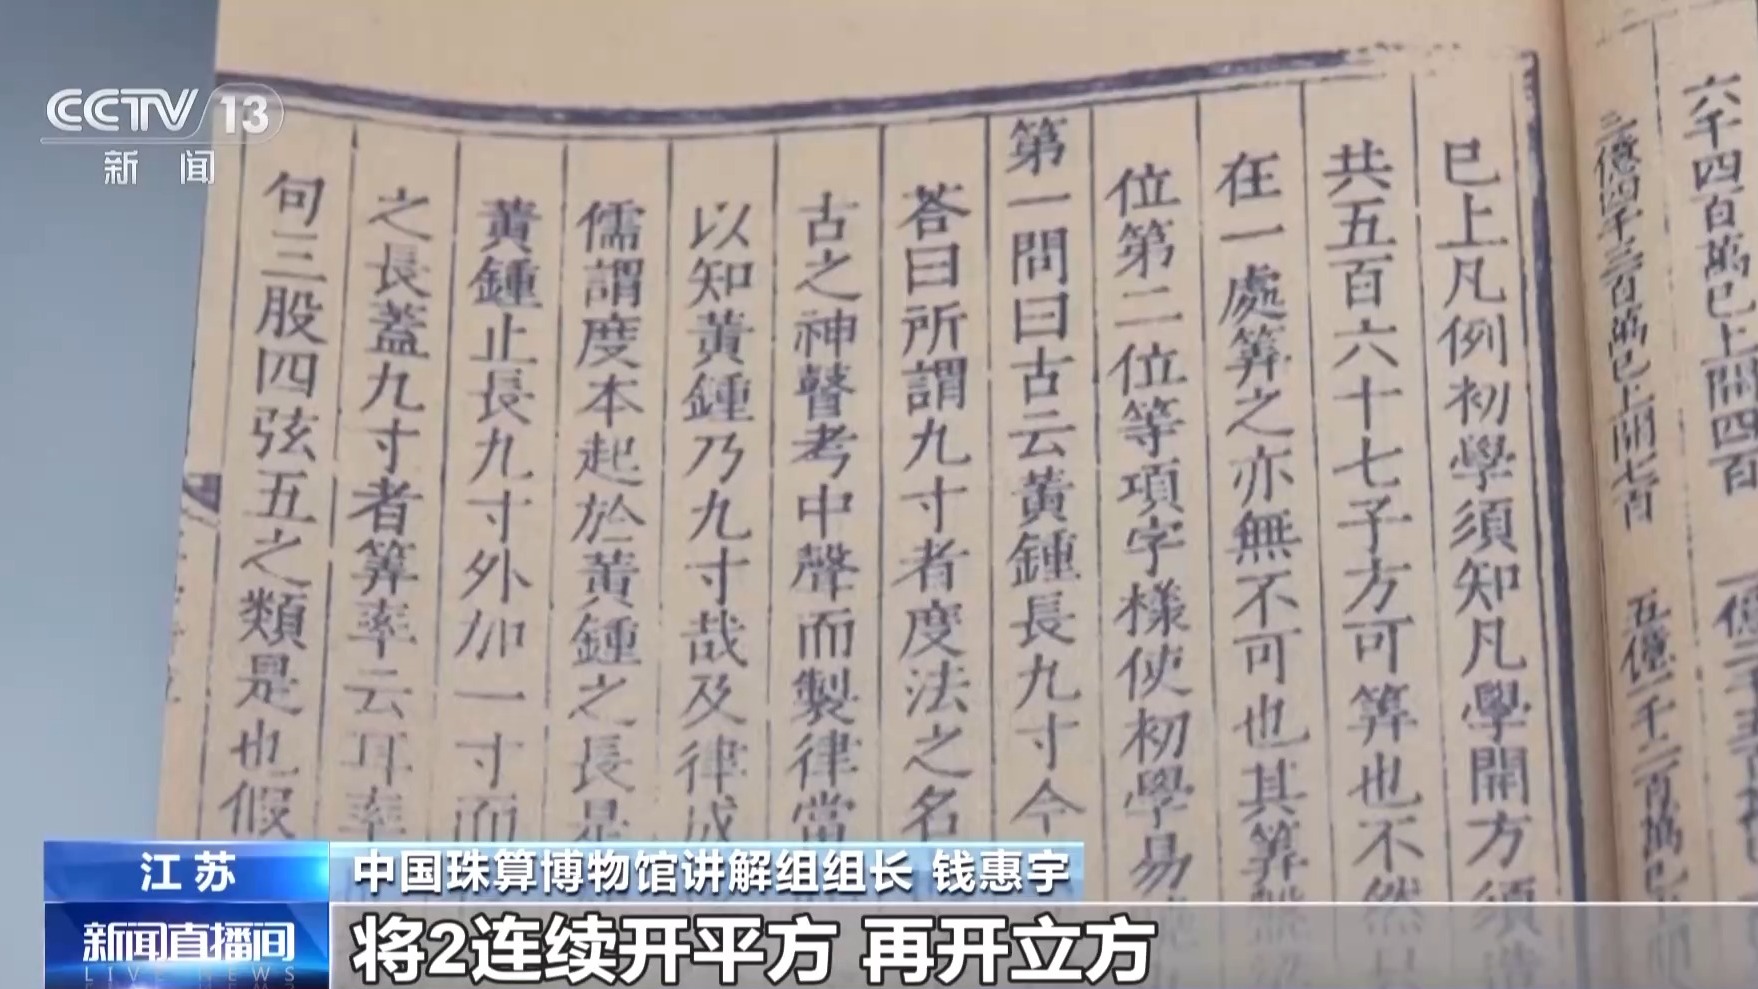 CCTV 13
新闻
六千四百萬巳上開四百
三億四千三百萬巳上開七百 五億一千二百萬巳上
巳上凡例初學須知凡學開方須
共五百六十七子方可筭也不然
在一處筭之亦無不可也其筭盤
位第二位等項字樣使初學易
第一問曰古云黃鍾長九寸今
荅曰所謂九寸者度法之名
古之神瞽考中聲而製律當
以知黃鍾乃九寸哉及律成
儒謂度本起於黃鍾之長是
黃鍾止長九寸外加一寸而
之長蓋九寸者筭率云耳率
句三股四弦五之類是也假
江苏
中国珠算博物馆讲解组组长 钱惠宇
新闻直播间
LIVE NEWS
将2连续开平方 再开立方